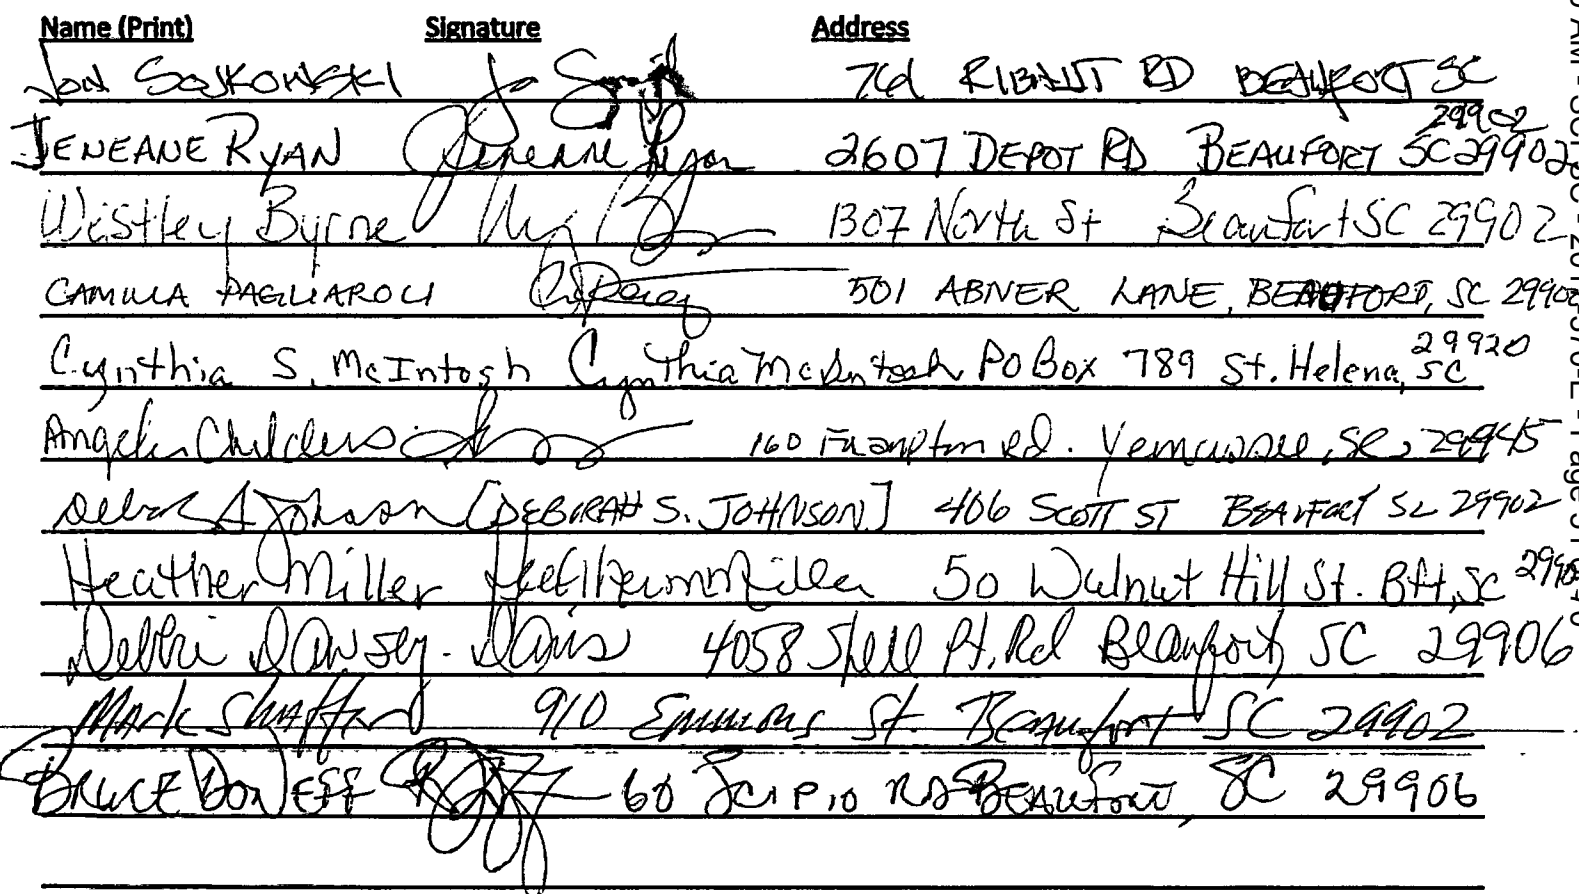 Name (Print) Signature Address
Jon SOJKOWSKI RIBAUT RD BEAUFORT SC
29902
JENEANE RYAN Jeneane Ryan 2607 DEPOT RD BEAUFORT SC 29902
Westley Byrne 1307 North St Beaufort SC 29902
CAMILLA PAGLIAROLI 501 ABNER LANE, BEAUFORT, SC
29920
Cynthia S. McIntosh Cynthia McIntosh PO Box 789 St. Helena, SC
Angela Childers 160 Frampton Rd. Yemassee, SC, 29945
[DEBORAH S. JOHNSON] 406 SCOTT ST BEAUFORT SC 29902
Heather Miller 50 Walnut Hill St. Bft, SC
Debbi Dawsey-Davis 4058 Shell Pt. Rd Beaufort, SC 29906
Mark Shaffer 910 Emmons St. Beaufort SC 29902
BRUCE DONEFF 60 Scipio RD BEAUFORT, SC 29906